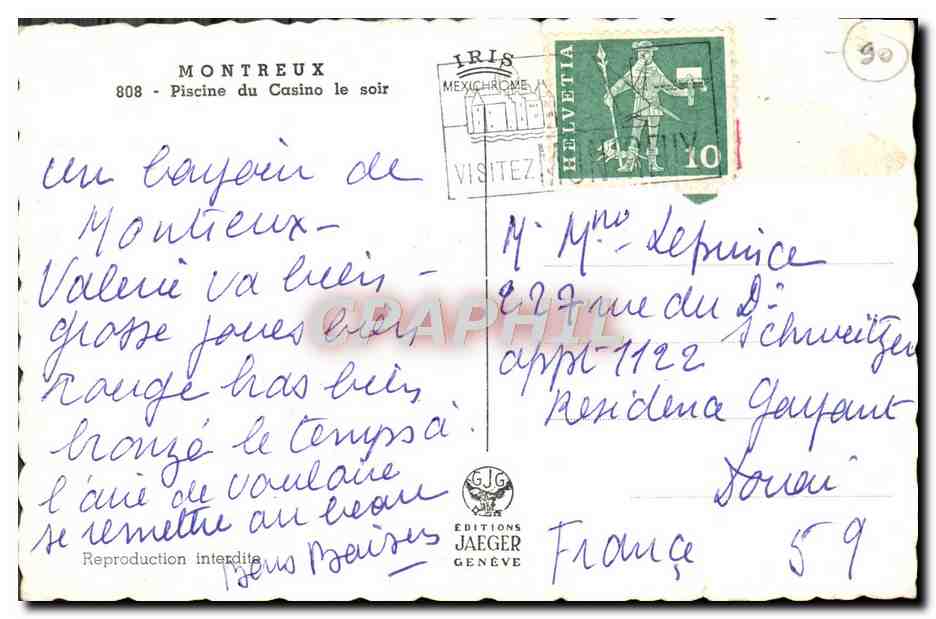 MONTREUX
808 - Piscine du Casino le soir
IRIS
MEXICHROME
VISITEZ
MONTREUX
HELVETIA
10
90
un bonjour de
Montreux -
Valerie va bien -
grosse joues bien
rouge bras bien
bronzé le temps à
l'aire de vouloire
se remettre au beau
Bons Baisers
Reproduction interdite
CPAPHIL
GJG
ÉDITIONS
JAEGER
GENÈVE
Mr Mme Leprince
227 rue du Dr
Schweitzer
appt 1122
Residence Gayant
Douai
France 59